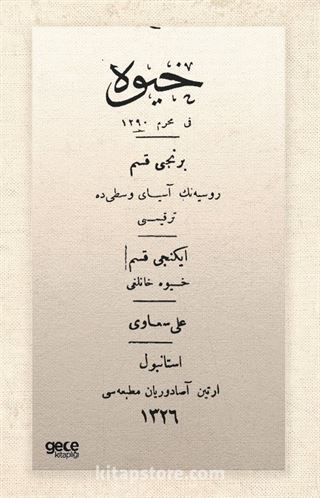 خیوه
فی محرم ١٢٩٠
برنجی قسم
روسیه‌نك آسیای وسطی ده
ترقیسی
ایكنجی قسم
خیوه خانلغی
علی سعاوی
استانبول
ارتین آصادوریان مطبعه سی
١٣٢٦
gece
kitaplığı
kitapstore.com